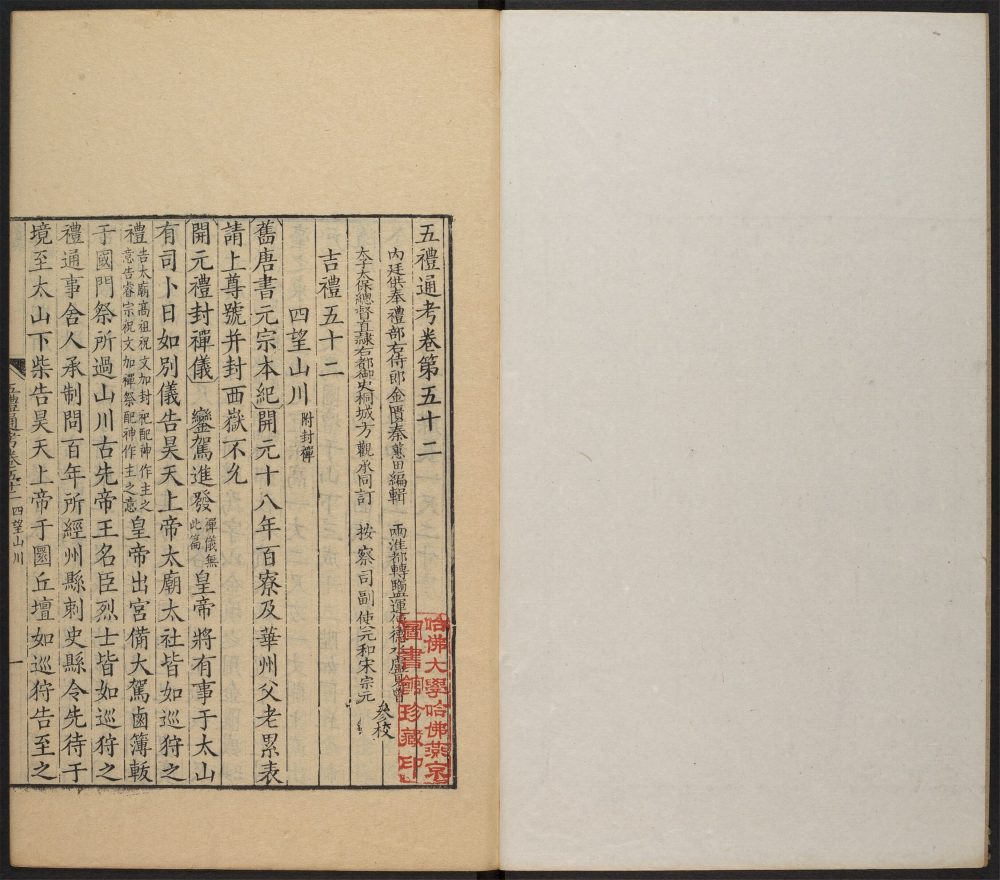 五禮通考卷第五十二
內廷供奉禮部右侍郎金匱秦蕙田編輯 兩淮都轉鹽運使德水盧見曾
太子太保總督直隸右都御史桐城方觀承同訂 按察司副使元和宋宗元
參校
吉禮五十二
四望山川附封禪
舊唐書元宗本紀開元十八年百寮及華州父老累表
請上尊號并封西嶽不允
開元禮封禪儀 鑾駕進發禪儀無此篇皇帝將有事于太山
有司卜日如別儀告昊天上帝太廟太社皆如巡狩之
禮告太廟高祖祝文加封祀配神作主之意告睿宗祝文加禪祭配神作主之意皇帝出宮備大駕鹵簿軷
于國門祭所過山川古先帝王名臣烈士皆如巡狩之
禮通事舍人承制問百年所經州縣刺史縣令先待于
境至太山下柴告昊天上帝于圜丘壇如巡狩告至之
五禮通考卷五十二 四望山川 一
哈佛大學哈佛燕京
圖書館珍藏印